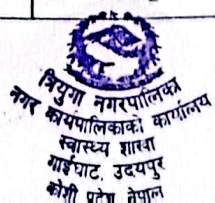 त्रियुगा नगरपालिका
नगर कार्यपालिकाको कार्यालय
स्वास्थ्य शाखा
गाईघाट, उदयपुर
कोशी प्रदेश नेपाल